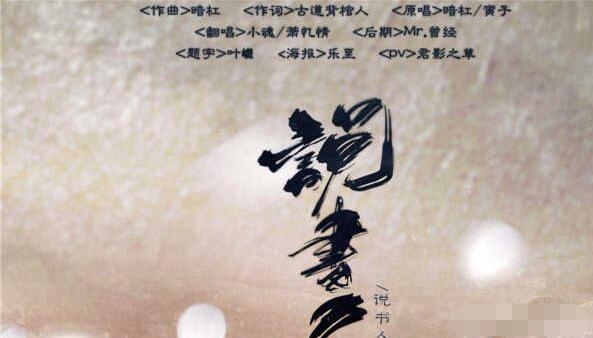 <作曲>暗杠 <作词>古道背棺人 <原唱>暗杠/寅子
<翻唱>小魂/萧忆情 <后期>Mr.曾经
<题字>叶 <海报>乐至 <pv>君影之草
説書人
\说书人